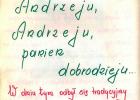 Andrzeju,
Andrzeju,
panien
dobrodzieju...
W dniu tym odbył się tradycyjny